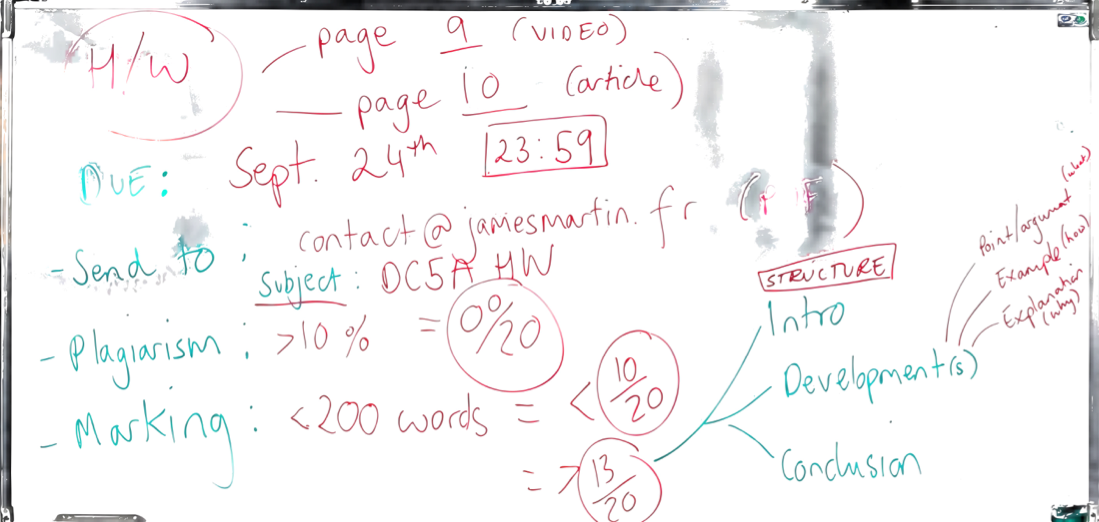 H/W
page 9 (VIDEO)
page 10 (article)
DUE: Sept. 24th 23:59
- Send to : contact@jamesmartin.fr
Subject : DC5A HW
- Plagiarism : >10 % = 0/20
- Marking : <200 words = < 10/20
= > 13/20
STRUCTURE
Intro
Development(s)
Point/argument (what)
Example (how)
Explanation (why)
Conclusion